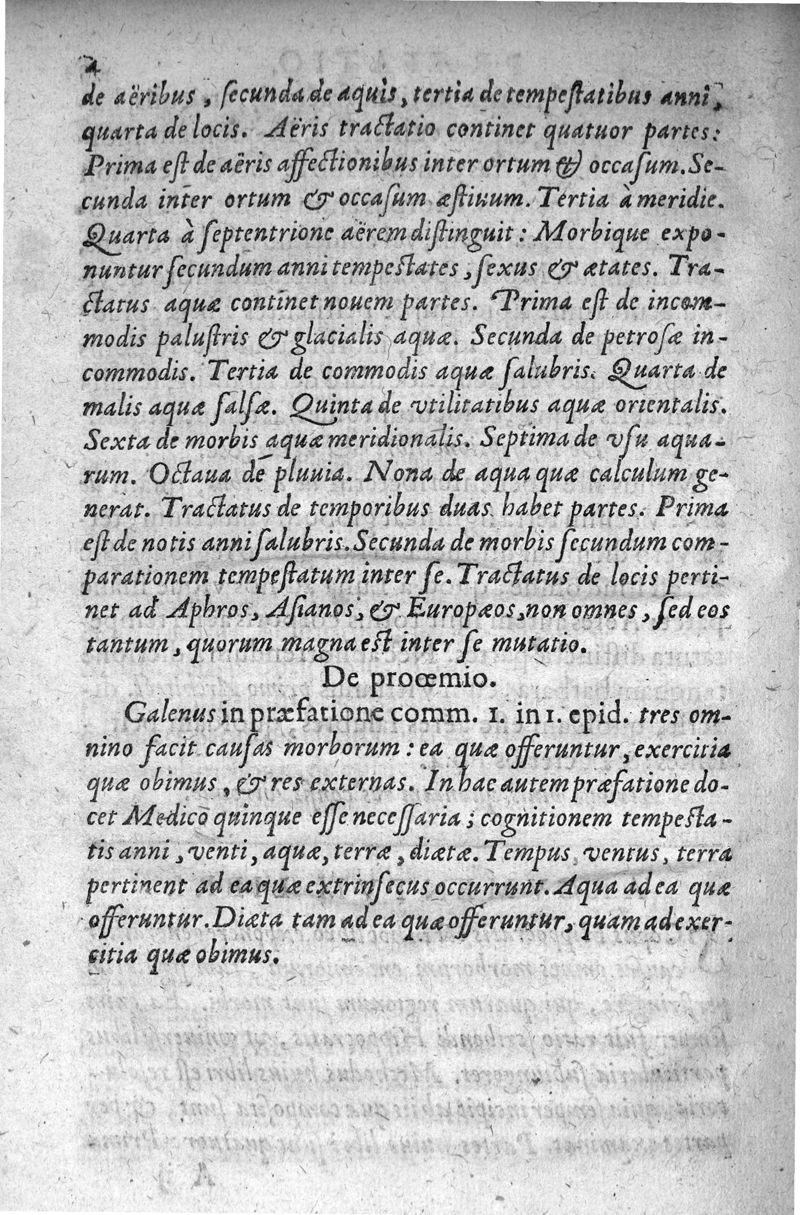 4
de aëribus, ſecunda de aquis, tertia de tempeſtatibus anni,
quarta de locis. Aëris tractatio continet quatuor partes:
Prima eſt de aëris affectionibus inter ortum & occaſum. Se-
cunda inter ortum & occaſum æſtiuum. Tertia à meridie.
Quarta à ſeptentrione aërem diſtinguit: Morbique expo-
nuntur ſecundum anni tempeſtates, ſexus & ætates. Tra-
ctatus aquæ continet nouem partes. Prima eſt de incom-
modis paluſtris & glacialis aquæ. Secunda de petroſæ in-
commodis. Tertia de commodis aquæ ſalubris. Quarta de
malis aquæ ſalſæ. Quinta de vtilitatibus aquæ orientalis.
Sexta de morbis aquæ meridionalis. Septima de vſu aqua-
rum. Octaua de pluuia. Nona de aqua quæ calculum ge-
nerat. Tractatus de temporibus duas habet partes. Prima
eſt de notis anni ſalubris. Secunda de morbis ſecundum com-
parationem tempeſtatum inter ſe. Tractatus de locis perti-
net ad Aphros, Aſianos, & Europæos, non omnes, ſed eos
tantum, quorum magna eſt inter ſe mutatio.
De proœmio.
Galenus in præfatione comm. 1. in 1. epid. tres om-
nino facit cauſas morborum: ea quæ offeruntur, exercitia
quæ obimus, & res externas. In hac autem præfatione do-
cet Medico quinque eſſe neceſſaria; cognitionem tempeſta-
tis anni, venti, aquæ, terræ, diætæ. Tempus, ventus, terra
pertinent ad ea quæ extrinſecus occurrunt. Aqua ad ea quæ
offeruntur. Diæta tam ad ea quæ offeruntur, quam ad exer-
citia quæ obimus.